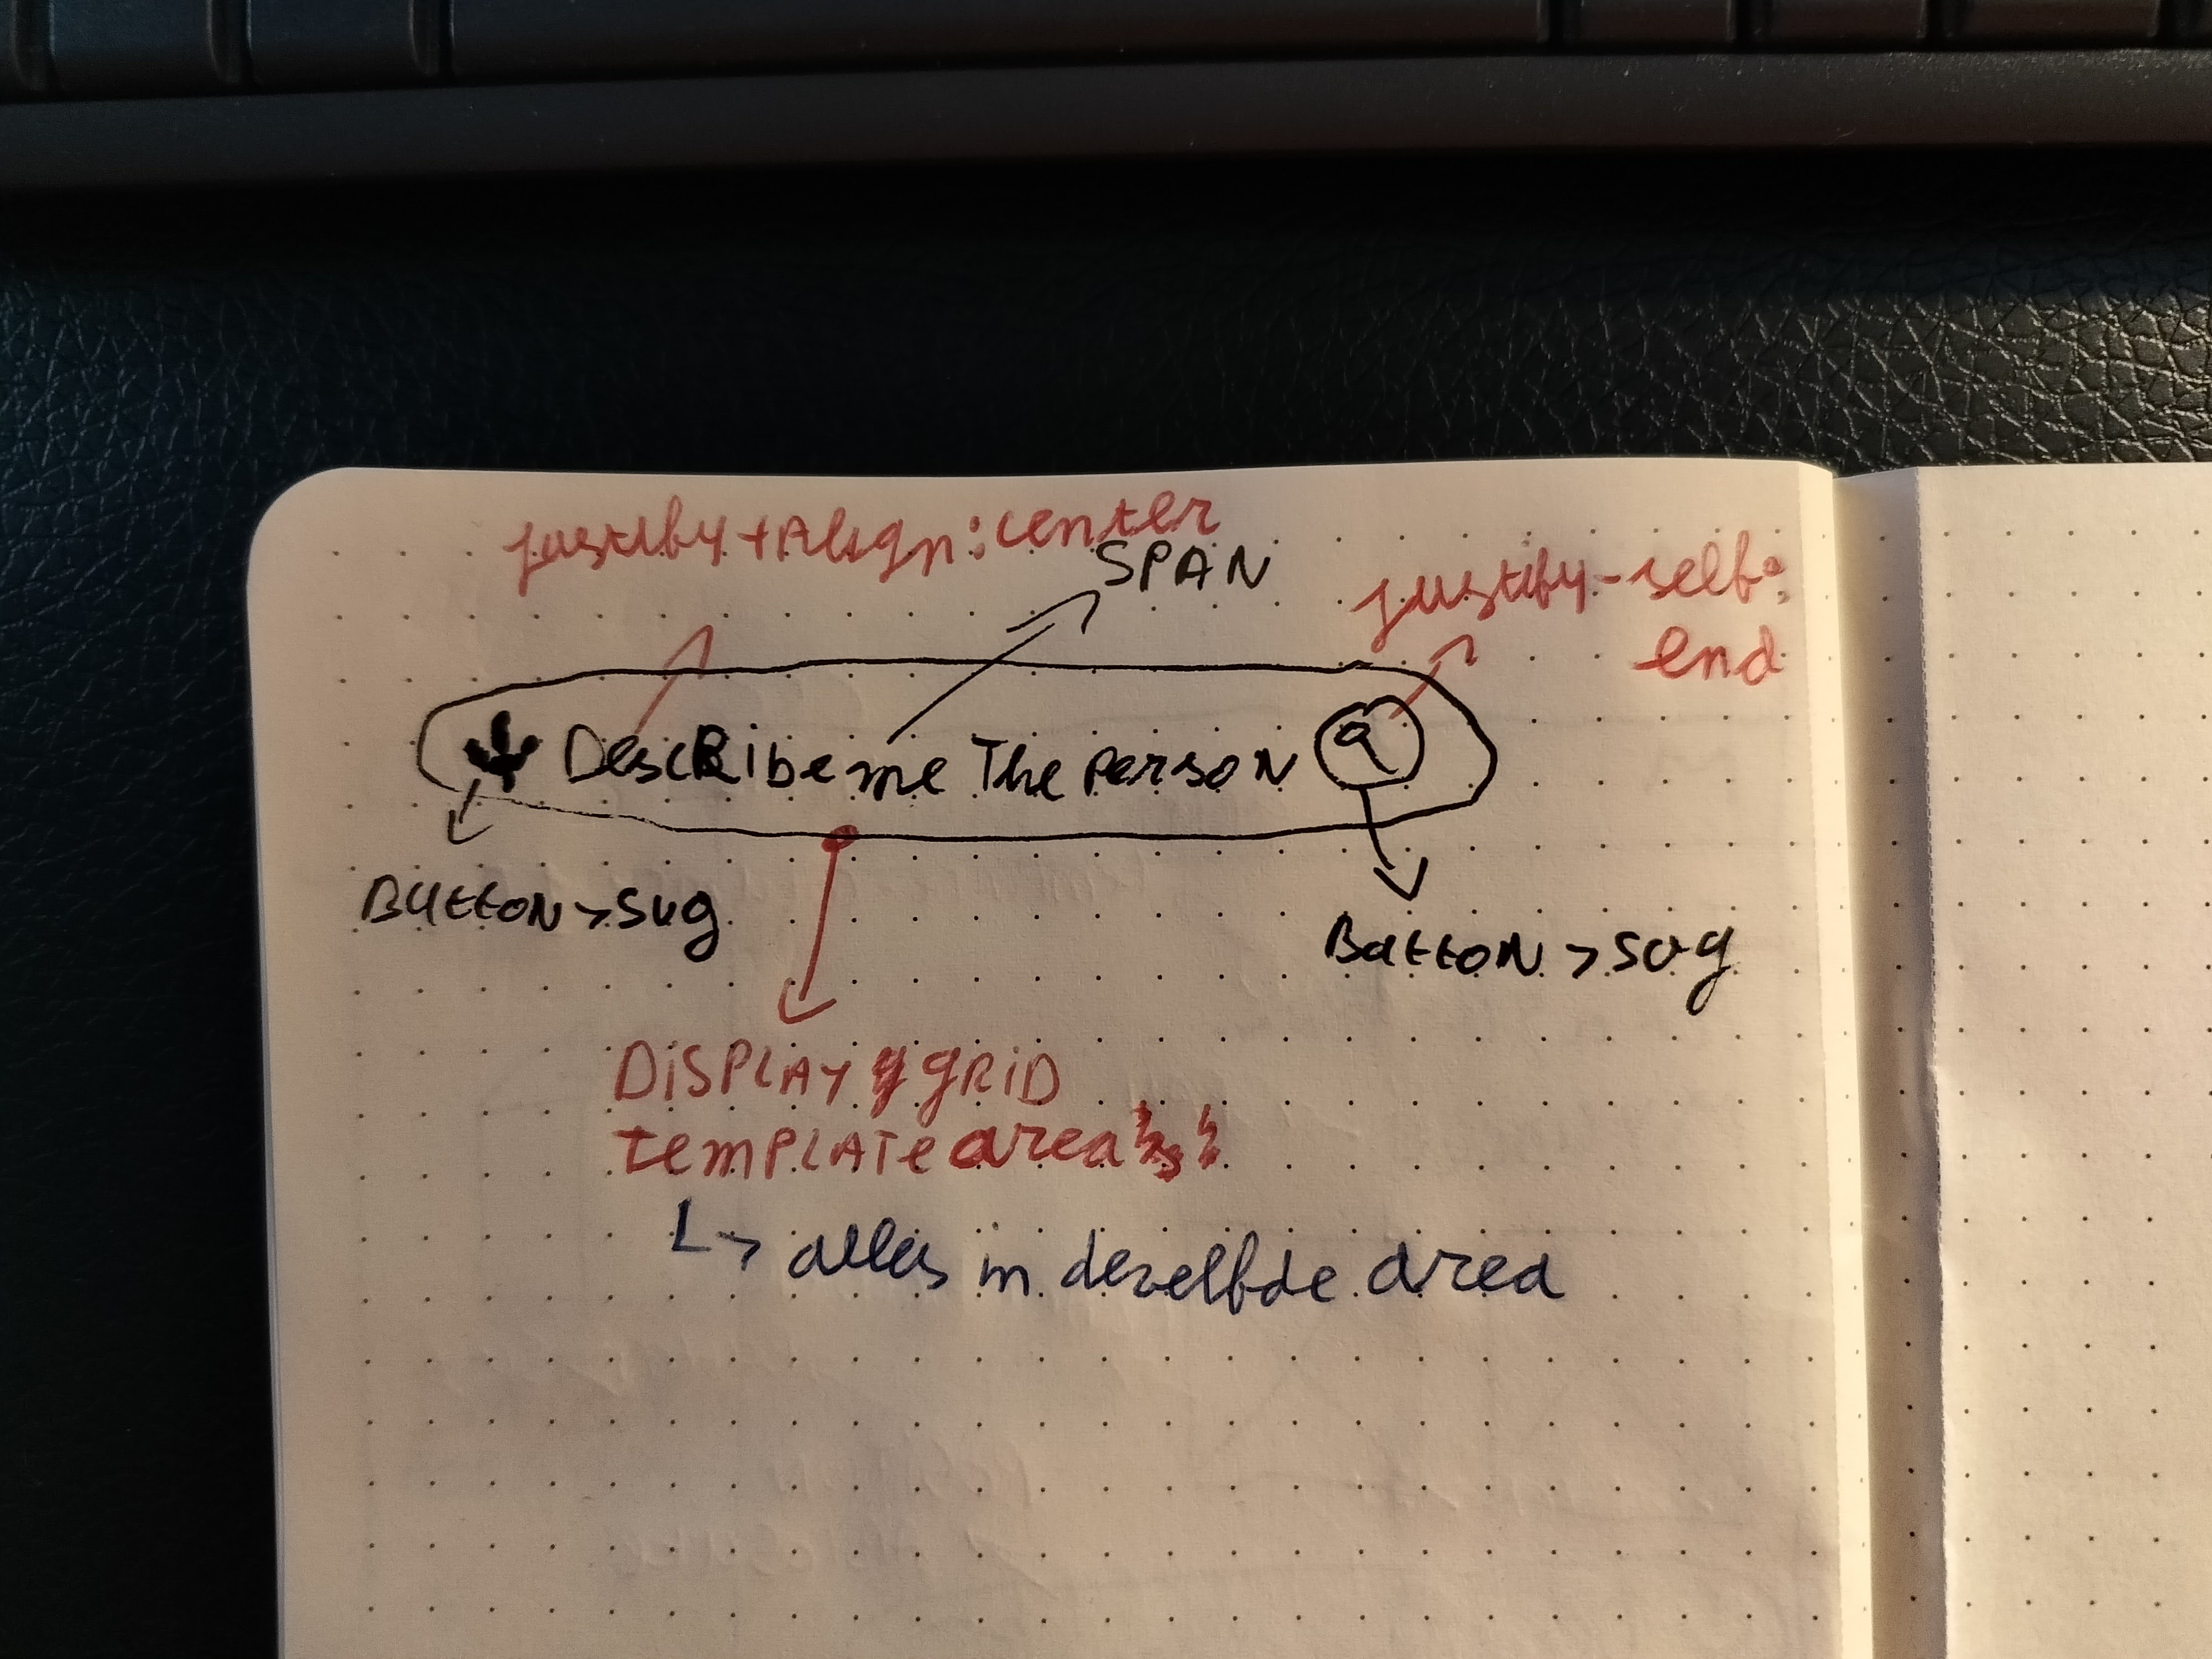 justify + Align: center
SPAN
justify-self:
end
Describe me The person
Button > svg
Button > svg
DISPLAY GRID
TEMPLATE area
↳ alles in dezelfde area